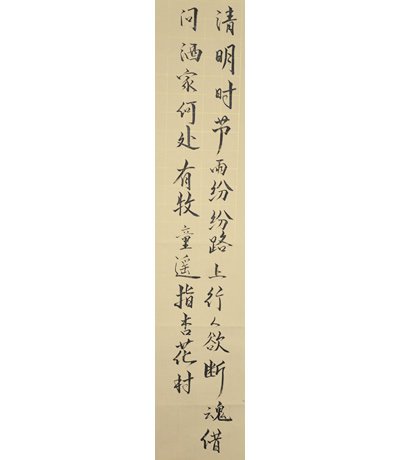 清明时节雨纷纷路上行人欲断魂借
问酒家何处有牧童遥指杏花村